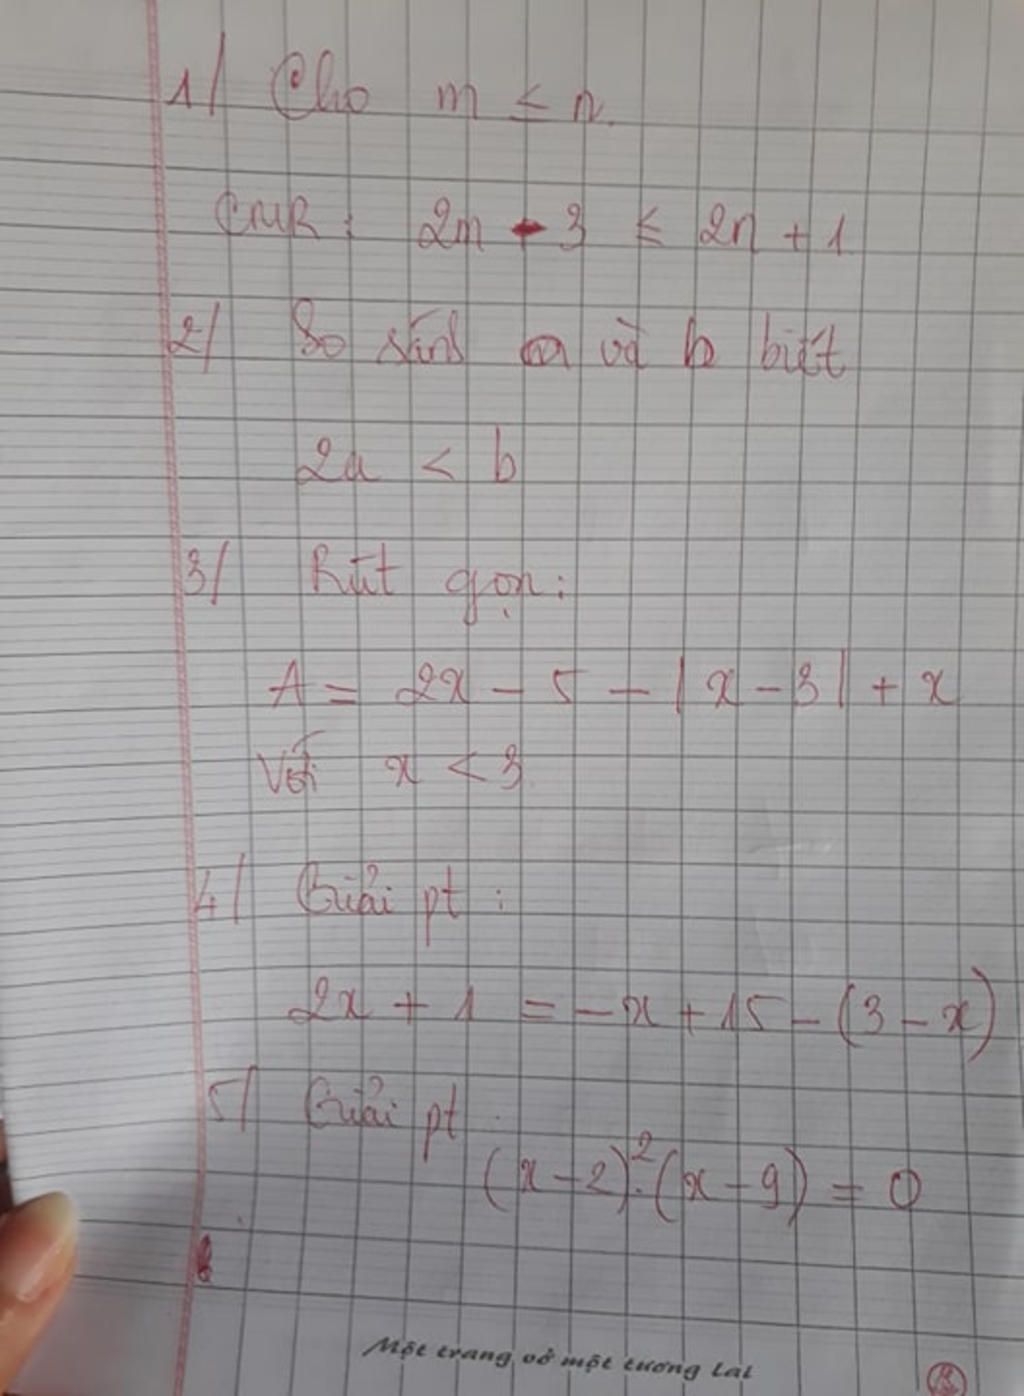 1/ Cho m ≤ n.
CMR : 2m - 3 ≤ 2n + 1
2/ So sánh a và b biết
2a < b
3/ Rút gọn:
A = 2x - 5 - |x - 3| + x
Với x < 3
4/ Giải pt :
2x + 1 = -x + 15 - (3 - x)
5/ Giải pt
(x - 2)².(x - 9) = 0
Một trang vở một tương lai